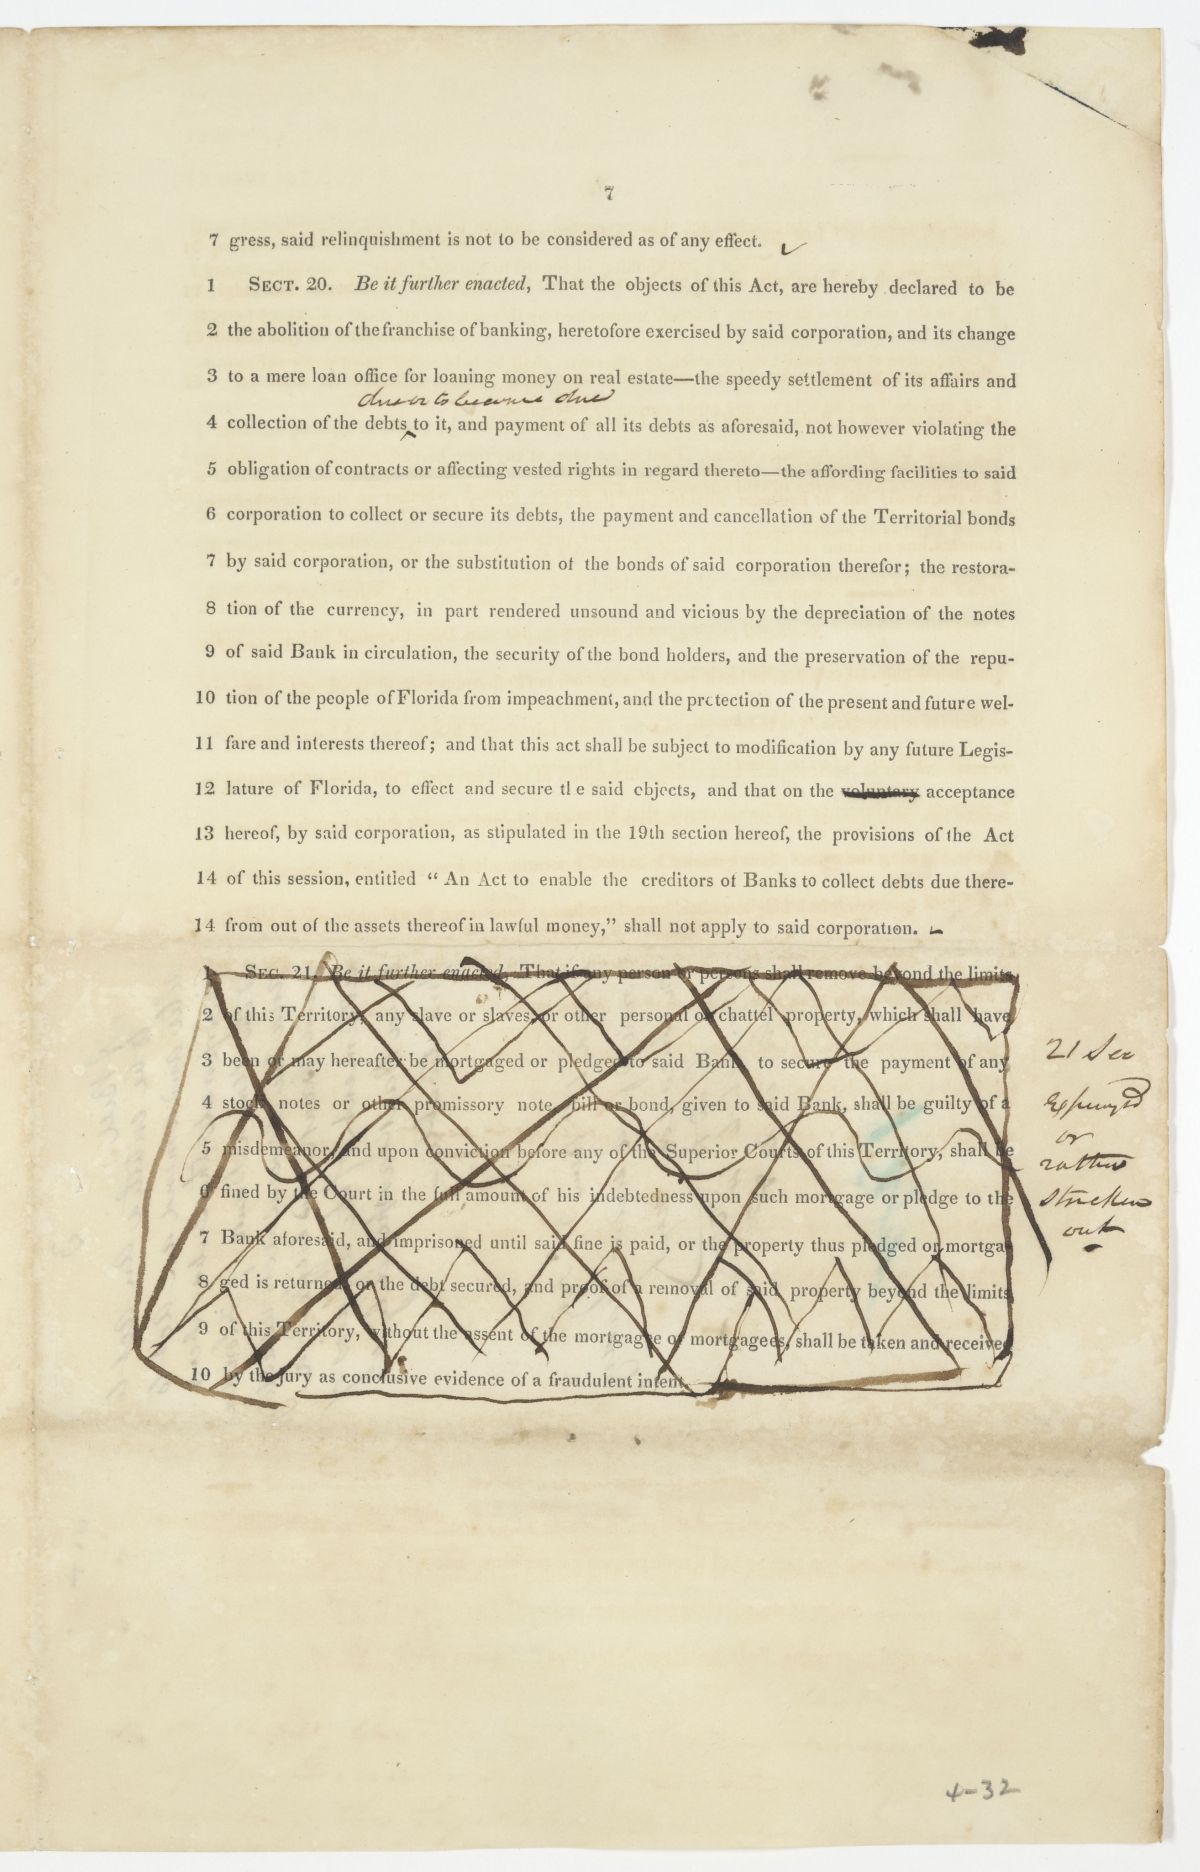 7
7 gress, said relinquishment is not to be considered as of any effect.
1 SECT. 20. Be it further enacted, That the objects of this Act, are hereby declared to be
2 the abolition of the franchise of banking, heretofore exercised by said corporation, and its change
3 to a mere loan office for loaning money on real estate—the speedy settlement of its affairs and
due or to become due
4 collection of the debts ‸ to it, and payment of all its debts as aforesaid, not however violating the
5 obligation of contracts or affecting vested rights in regard thereto—the affording facilities to said
6 corporation to collect or secure its debts, the payment and cancellation of the Territorial bonds
7 by said corporation, or the substitution of the bonds of said corporation therefor; the restora-
8 tion of the currency, in part rendered unsound and vicious by the depreciation of the notes
9 of said Bank in circulation, the security of the bond holders, and the preservation of the repu-
10 tion of the people of Florida from impeachment, and the protection of the present and future wel-
11 fare and interests thereof; and that this act shall be subject to modification by any future Legis-
12 lature of Florida, to effect and secure the said objects, and that on the voluntary acceptance
13 hereof, by said corporation, as stipulated in the 19th section hereof, the provisions of the Act
14 of this session, entitled "An Act to enable the creditors of Banks to collect debts due there-
14 from out of the assets thereof in lawful money," shall not apply to said corporation.
1 SEC. 21. Be it further enacted, That if any person or persons shall remove beyond the limits
2 of this Territory, any slave or slaves, or other personal or chattel property, which shall have
3 been or may hereafter be mortgaged or pledged to said Bank to secure the payment of any
4 stock notes or other promissory note, bill or bond, given to said Bank, shall be guilty of a
5 misdemeanor, and upon conviction before any of the Superior Courts of this Territory, shall be
6 fined by the Court in the full amount of his indebtedness upon such mortgage or pledge to the
7 Bank aforesaid, and imprisoned until said fine is paid, or the property thus pledged or mortga-
8 ged is returned, or the debt secured, and proof of a removal of said property beyond the limits
9 of this Territory, without the assent of the mortgagee or mortgagees, shall be taken and received
10 by the Jury as conclusive evidence of a fraudulent intent.
21 Sec
Expunged
or
rather
stricken
out
4-32